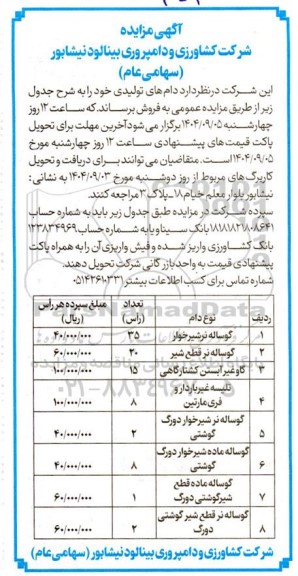 آگهی مزایده
شرکت کشاورزی و دامپروری بینالود نیشابور
(سهامی عام)
این شرکت درنظردارد دام های تولیدی خود را به شرح جدول
زیر از طریق مزایده عمومی به فروش برساند، که ساعت ۱۲ روز
چهارشنبه ۱۴۰۴/۰۹/۰۵ برگزار می شود آخرین مهلت برای تحویل
پاکت قیمت های پیشنهادی ساعت ۱۲ روز چهارشنبه مورخ
۱۴۰۴/۰۹/۰۵ است. متقاضیان می توانند برای دریافت و تحویل
کاربرگ های مربوط از روز دوشنبه مورخ ۱۴۰۴/۰۹/۰۳ به نشانی:
نیشابور بلوار معلم خیام ۱۸_ پلاگ ۳ مراجعه کنند.
سپرده شرکت در مزایده طبق جدول زیر باید به شماره حساب
بانک سینا و یا به شماره حساب ۱۲۳۸۳۴۹۶۹
بانک کشاورزی واریز شده و فیش واریزی آن را به همراه پاکت
پیشنهادی قیمت به واحد بازرگانی شرکت تحویل دهند.
شماره تماس برای کسب اطلاعات بیشتر: ۰۵۱۴۲۶۱۰۳۳۱
ردیف نوع دام تعداد (راس) مبلغ سپرده هر راس (ریال)
۱ گوساله نر شیرخوار ۳۵ ۴۰/۰۰۰/۰۰۰
۲ گوساله نر قطع شیر ۲۰ ۶۰/۰۰۰/۰۰۰
۳ گاو غیر آبستن کشتارگاهی ۱۵
۴ تلیسه غیرباردار و فری مارتین ۸ ۱۰۰/۰۰۰/۰۰۰
۵ گوساله نر شیر خوار دورگ گوشتی ۲ ۴۰/۰۰۰/۰۰۰
۶ گوساله ماده شیرخوار دورگ گوشتی ۸ ۴۰/۰۰۰/۰۰۰
۷ گوساله ماده قطع شیر گوشتی دورگ ۱ ۶۰/۰۰۰/۰۰۰
۸ گوساله نر قطع شیر گوشتی دورگ ۲ ۶۰/۰۰۰/۰۰۰
شرکت کشاورزی و دامپروری بینالود نیشابور (سهامی عام)